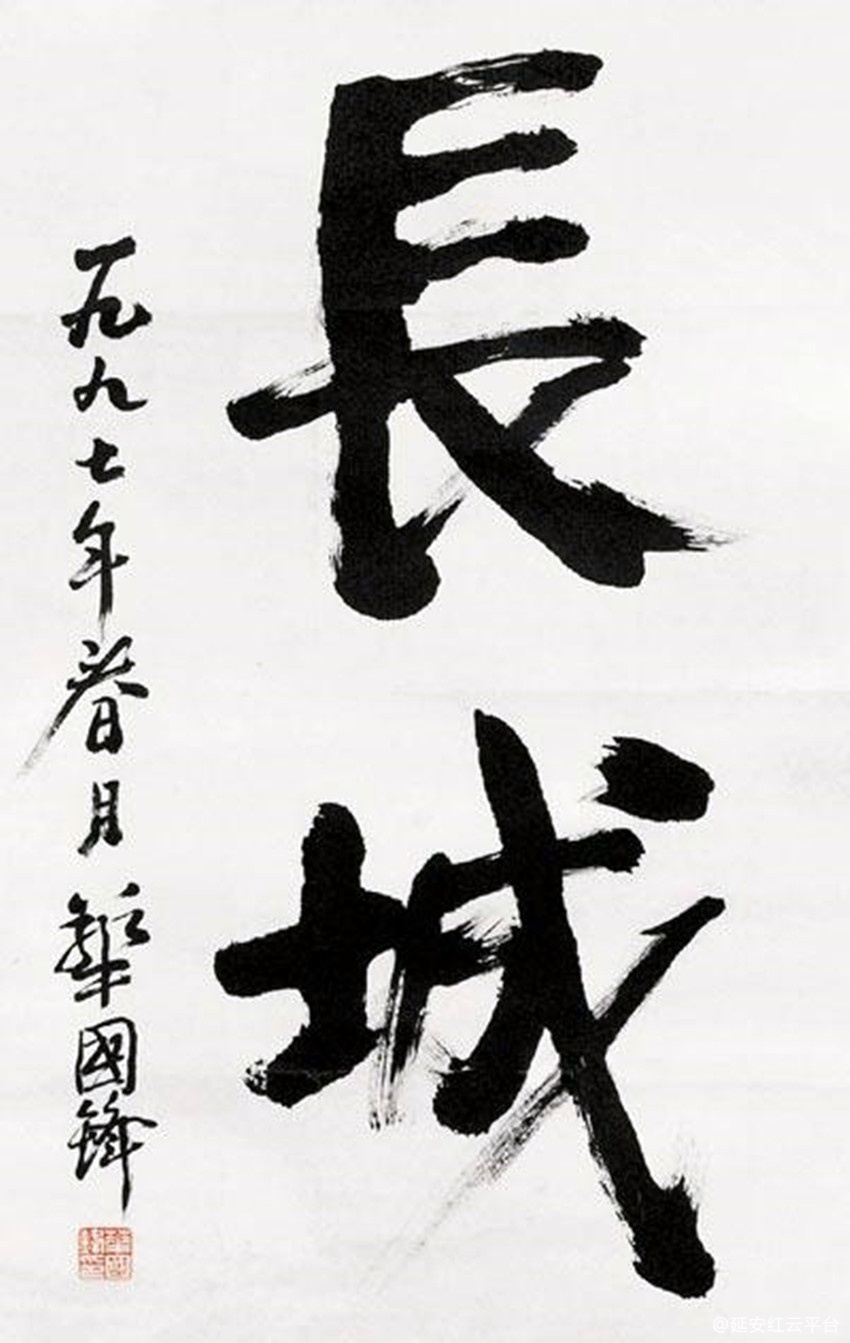 長城
一九九七年春月 華國鋒
華國鋒印
@延安红云平台